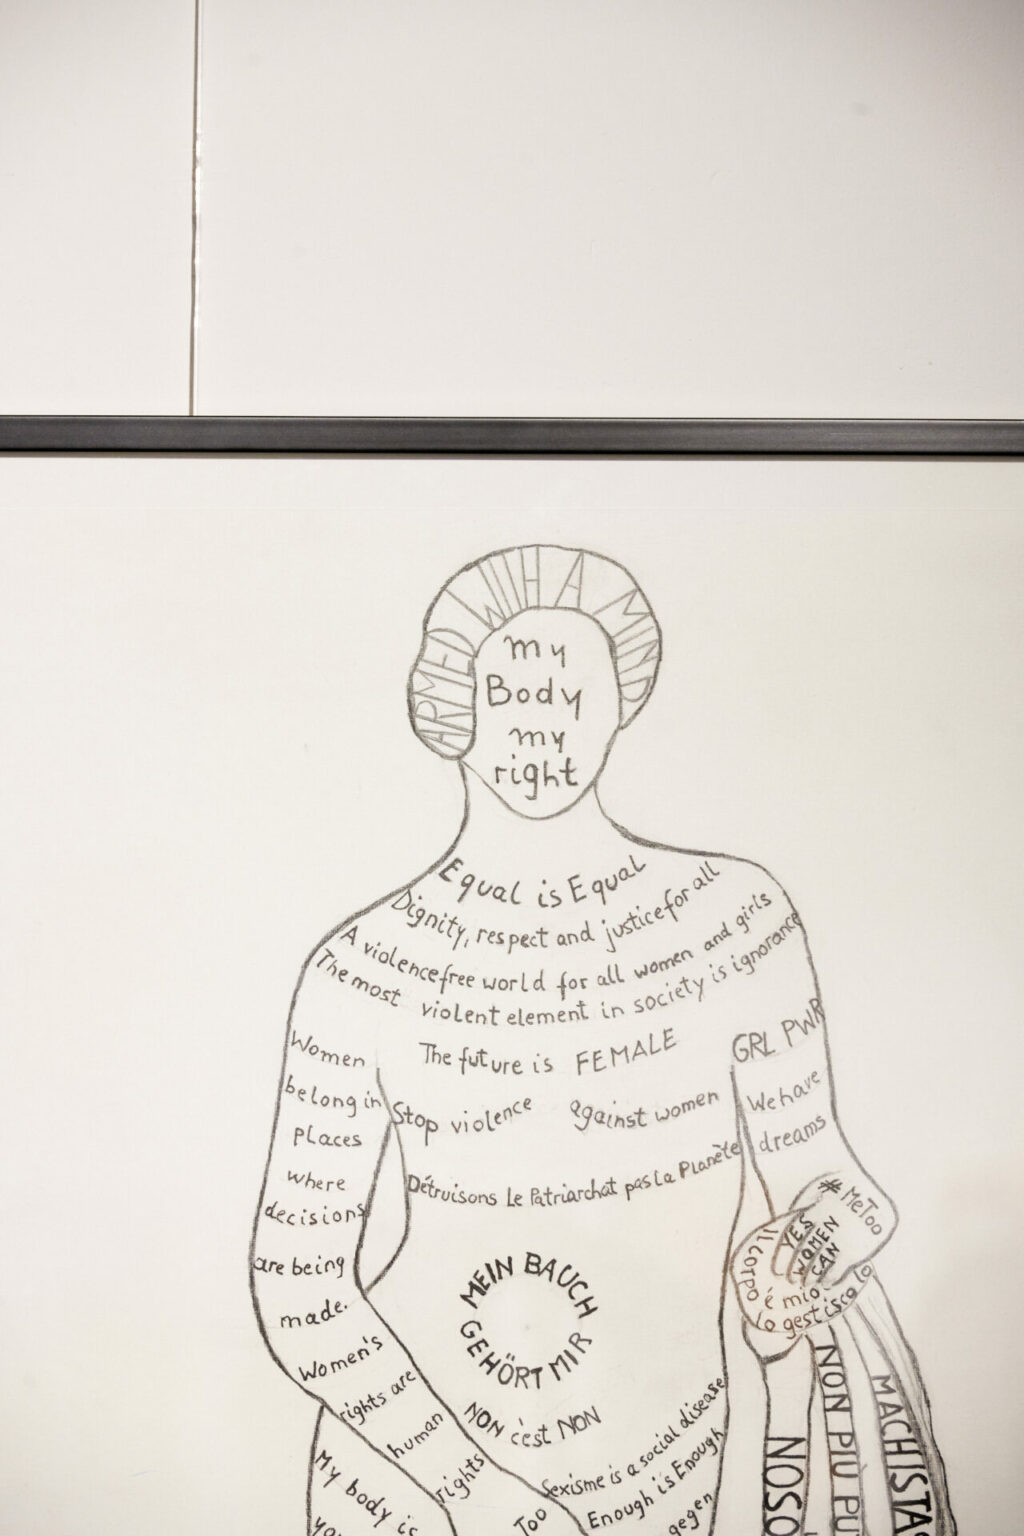 ARMED WITH A MIND
my
Body
my
right
Equal is Equal
Dignity, respect and justice for all
A violence free world for all women and girls
The most violent element in society is ignorance
The future is FEMALE
Stop violence against women
Détruisons Le Patriarchat pas La Planète
MEIN BAUCH
GEHÖRT MIR
NON c'est NON
Sexisme is a social disease
Enough is Enough
gegen
Too
Women
belong in
places
where
decisions
are being
made.
Women's
rights are
human
rights
My body is
GRL PWR
We have
dreams
#MeToo
YES
WOMEN
CAN
Il corpo è mio, lo gestisco Io
NON PIÙ